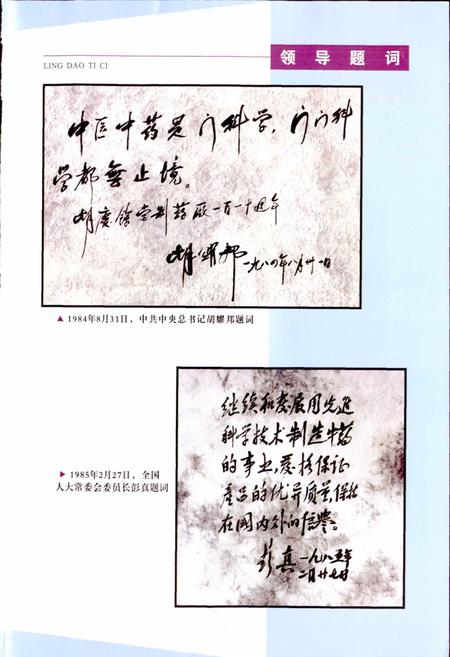 LING DAO TI CI
领导题词
中医中药是一门科学，门门科
学都無止境。
胡庆馀堂制药厂一百一十週年
胡耀邦 一九八四年八月卅一日
▲ 1984年8月31日，中共中央总书记胡耀邦题词
继续和发展用先进
科学技术制造中药
的事业，要接保证
产品的优异质量，保持
在国内外的信誉。
彭真 一九八五年
二月廿七日
▶ 1985年2月27日，全国
人大常委会委员长彭真题词